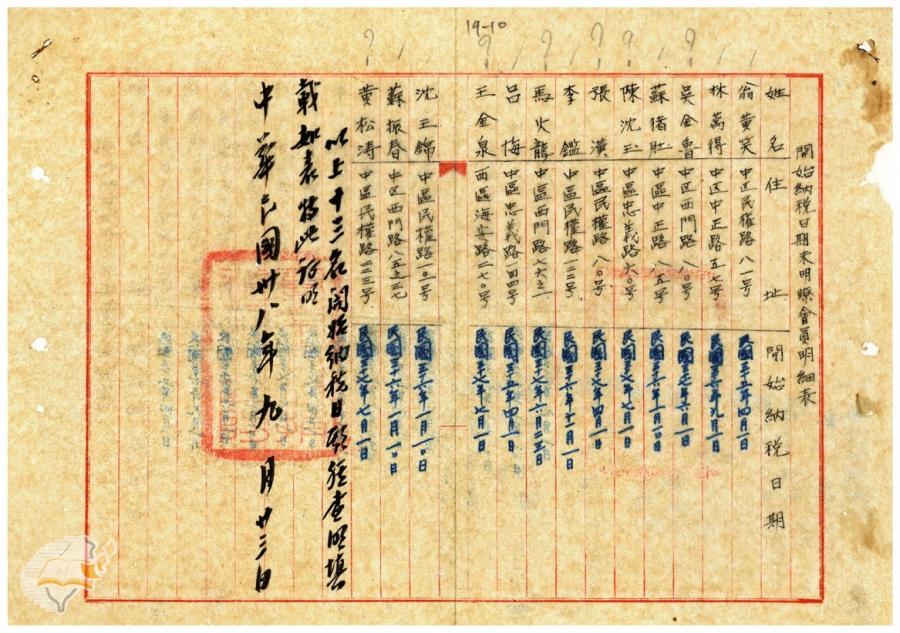 19-10
開始納稅日期未明瞭會員明細表
姓名 住址 開始納稅日期
翁黃笑 中区民權路八一号 民國三五年四月一日
林萬得 中区中正路五七号 民國三六年九月一日
吳金魯 中区西門路八〇号 民國三七年六月一日
蘇猪肚 中區中正路八五号 民國三六年一月一〇日
陳沈玉 中區忠義路六〇号 民國三七年一月一日
張漢 中區民權路八〇号 民國三七年四月一日
李鑑 中區民權路一二三号 民國三六年十二月一日
馬火龍 中區西門路七六之二 民國三七年六月二五日
呂海 中區忠義路四四号 民國三五年四月一日
王金泉 西區海安路二七〇号 民國三七年七月一日
沈王錦 中區民權路一〇二号 民國三六年一月一〇日
蘇振春 中区西門路八五之二七 民國三六年一月一〇日
黃松涛 中區民權路一二三号 民國三七年七月一日
以上十三名開始納稅日期經查明填
載如表特此証明
中華民國卅八年九月廿三日